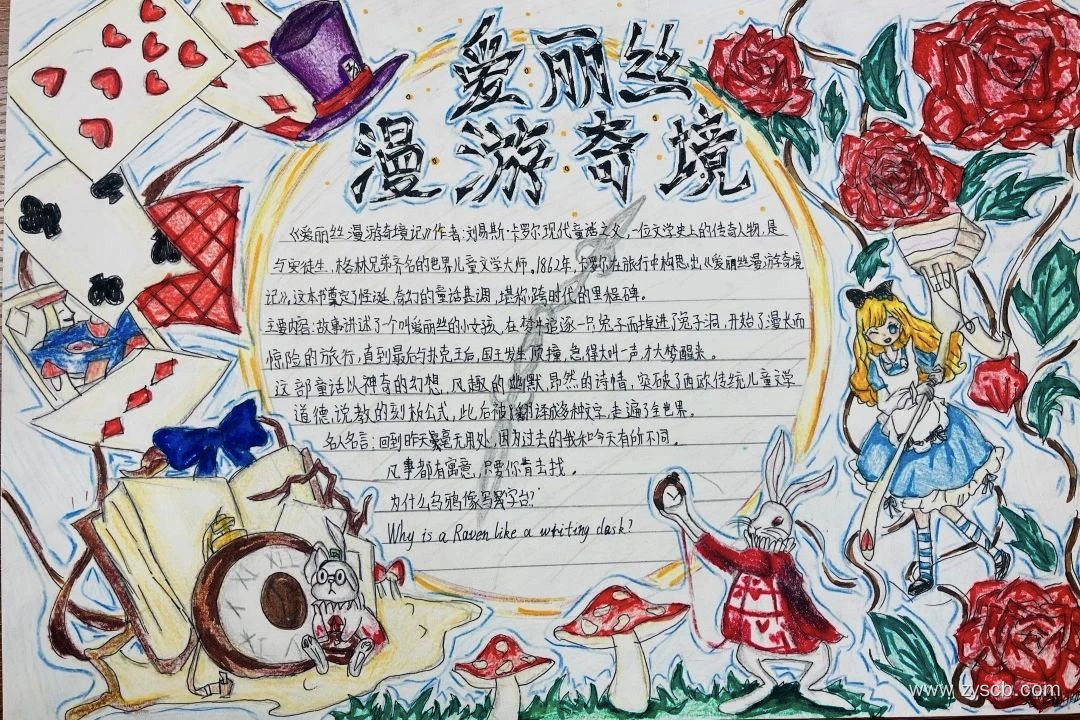 爱丽丝
漫游奇境
《爱丽丝漫游奇境记》作者:刘易斯·卡罗尔现代童话之父,一位文学史上的传奇人物,是
与安徒生,格林兄弟齐名的世界儿童文学大师。1862年,卡罗尔在旅行中构思出《爱丽丝漫游奇境
记》,这本书奠定了怪诞、奇幻的童话基调,堪称跨时代的里程碑。
主要内容:故事讲述了一个叫爱丽丝的小女孩,在梦中追逐一只兔子而掉进了兔子洞,开始了漫长而
惊险的旅行,直到最后与扑克王后,国王发生顶撞,急得大叫一声,才大梦醒来。
这部童话以神奇的幻想,风趣的幽默,昂然的诗情,突破了西欧传统儿童文学
道德,说教的刻板公式,此后被翻译成多种文字,走遍了全世界。
名人名言:回到昨天毫无用处,因为过去的我和今天有所不同。
凡事都有寓意,只要你肯去找。
为什么乌鸦像写字台?
Why is a Raven like a writing dask?
www.zyscb.com